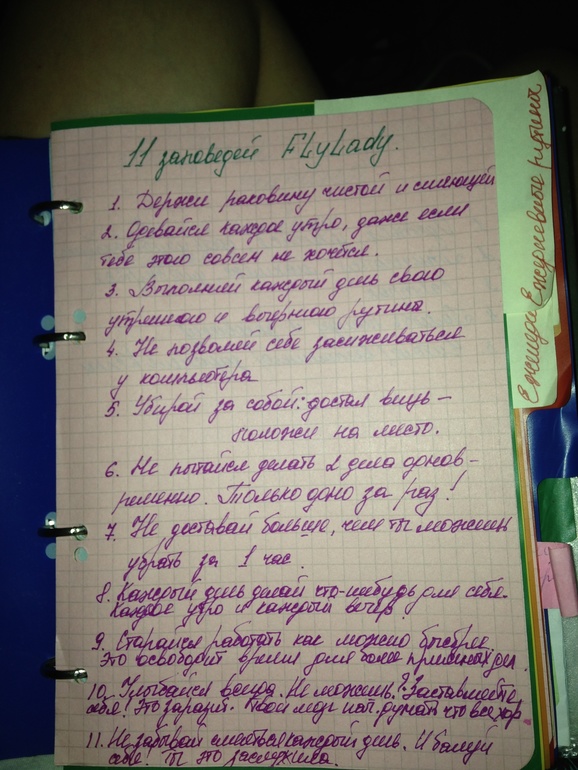 11 заповедей FLyLady.
1. Держи раковину чистой и сияющей
2. Одевайся каждое утро, даже если
тебе этого совсем не хочется.
3. Выполняй каждый день свою
утреннюю и вечернюю рутину.
4. Не позволяй себе засиживаться
у компьютера
5. Убирай за собой: достал вещь –
положи на место.
6. Не пытайся делать 2 дела однов-
ременно. Только одно за раз!
7. Не доставай больше, чем ты можешь
убрать за 1 час.
8. Каждый день делай что-нибудь для себя.
Каждое утро и каждый вечер.
9. Старайся работать как можно быстрее
Это освободит время для более приятных дел.
10. Улыбайся всегда. Не можешь? Заставляй
себя! Это заразит. Твой мозг думать что все хор
11. Не забывай смеяться каждый день. И балуй
себя! Ты это заслужила.
Ежедневные рутины